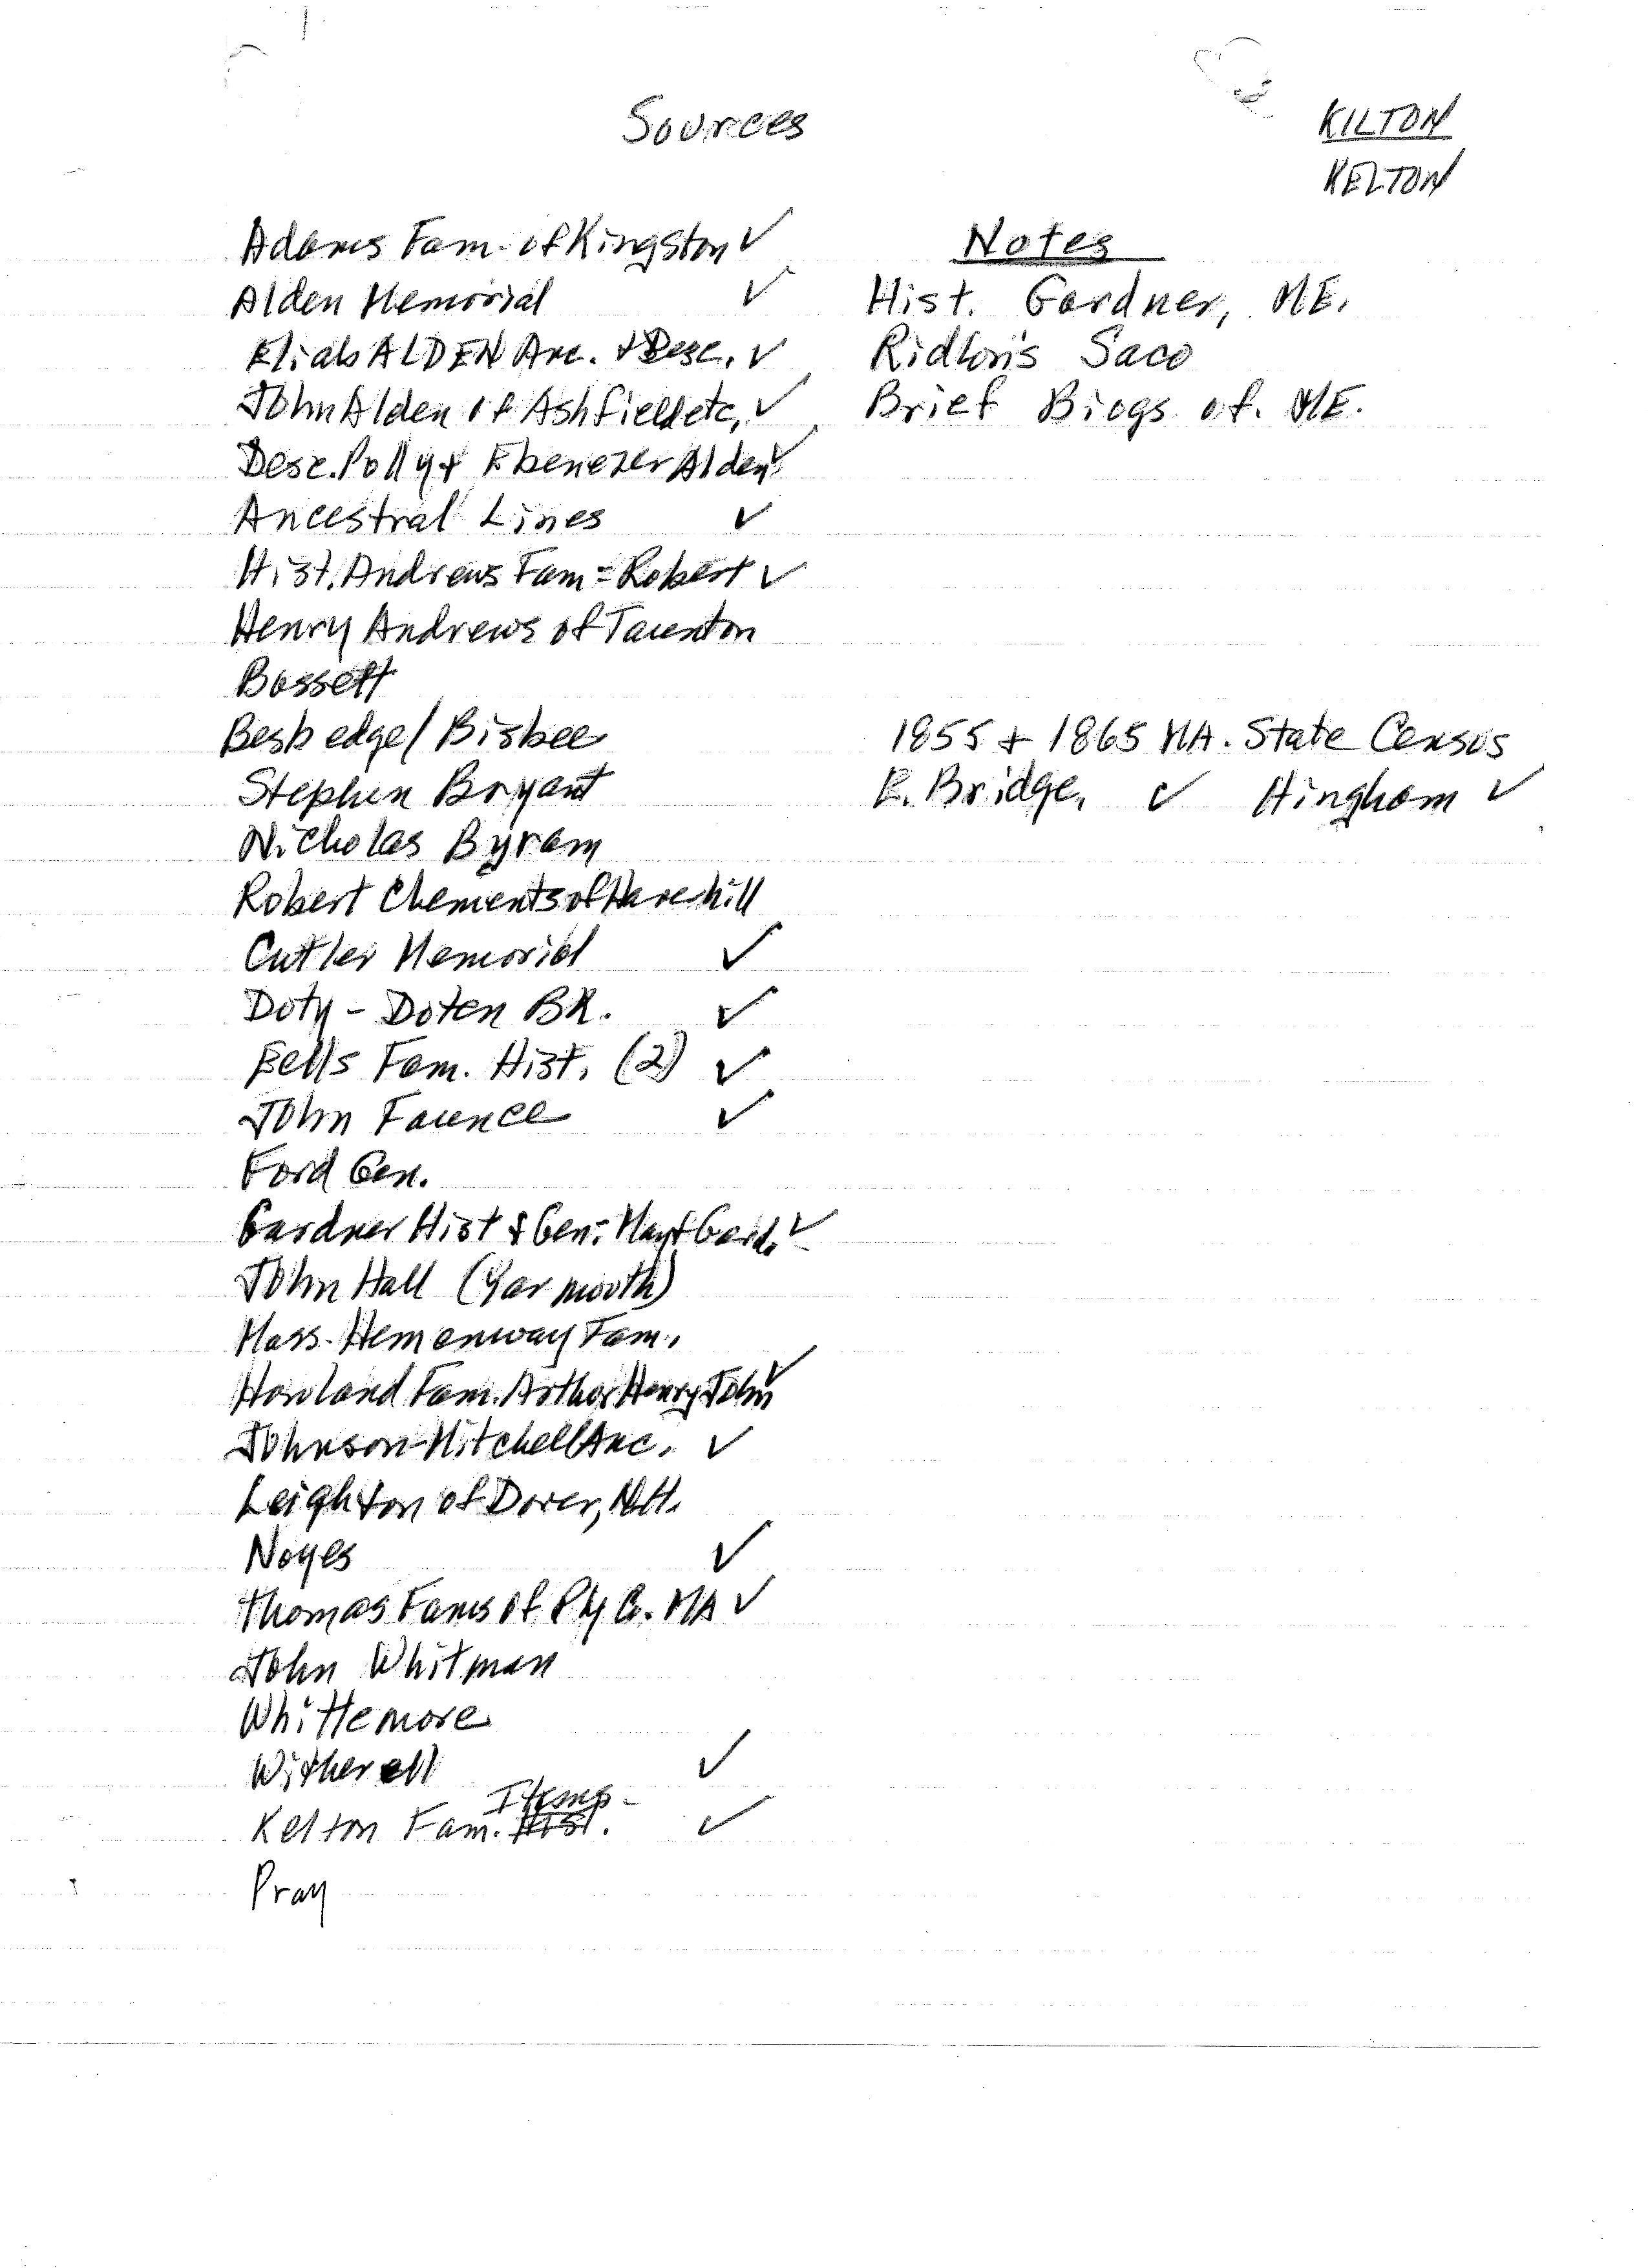 Sources
KILTON
KELTON
Adams Fam. of Kingston ✓
Alden Memorial ✓
Eliab ALDEN Anc. + Desc. ✓
John Alden of Ashfield etc. ✓
Desc. Polly + Ebenezer Alden ✓
Ancestral Lines ✓
Hist. Andrews Fam = Robert ✓
Henry Andrews of Taunton
Bassett
Besbedge/Bisbee
Stephen Bryant
Nicholas Byram
Robert Clements of Haverhill
Cutler Memorial ✓
Doty - Doten BK. ✓
Eells Fam. Hist. (2) ✓
John Faunce ✓
Ford Gen.
Gardner Hist & Gen: ✓
John Hall (Yarmouth)
Mass. Hemenway Fam.
Howland Fam. Arthur Henry John ✓
Johnson-Mitchell Anc. ✓
Leighton of Dover, N.H.
Noyes ✓
Thomas Fams of Ply Co. MA ✓
John Whitman
Whittemore
Witherell ✓
Kelton Fam. Items - ✓
Pray
Notes
Hist. Gardner, ME.
Ridlon's Saco
Brief Biogs of. ME.
1855 + 1865 MA. State Census
E. Bridge. ✓ Hingham ✓